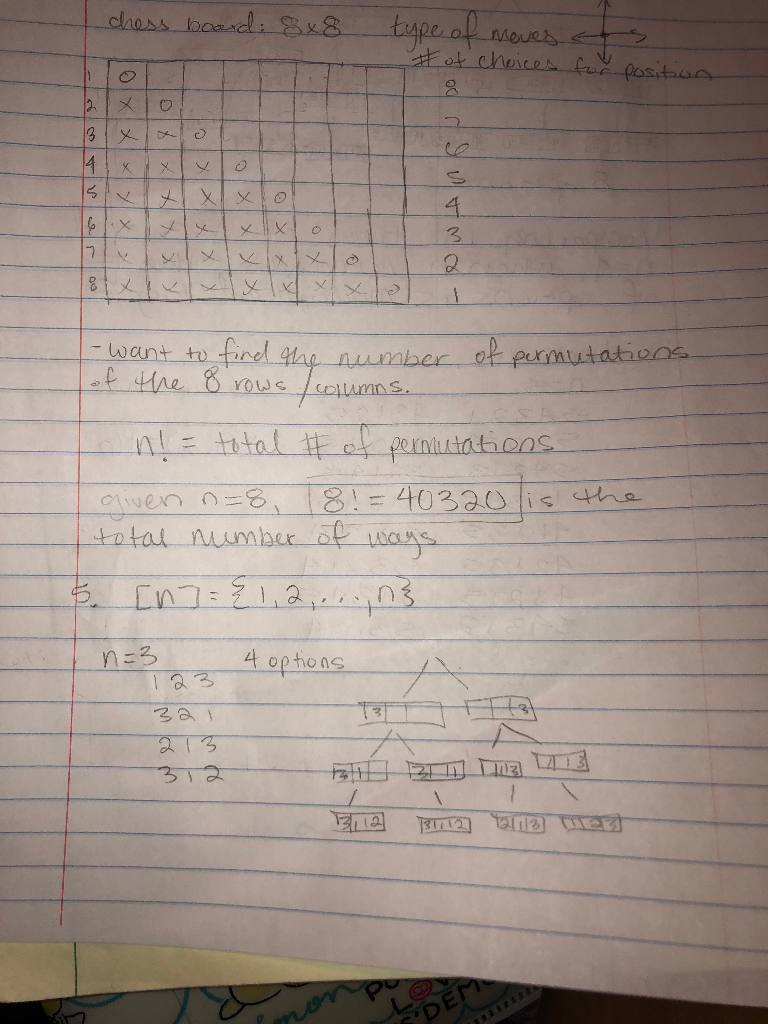 chess board: 8x8 type of moves
# of choices for position
1 O 8
2 X O 7
3 X X O 6
4 X X X O 5
5 X X X X O 4
6 X X X X X O 3
7 X X X X X X O 2
8 X X X X X X X O 1
- want to find the number of permutations
of the 8 rows / columns.
n! = total # of permutations
given n=8, 8! = 40320 is the
total number of ways
5. [n] = {1, 2, ..., n}
n=3 4 options
1 2 3
3 2 1
2 1 3
3 1 2
3 3
3 1 3 1